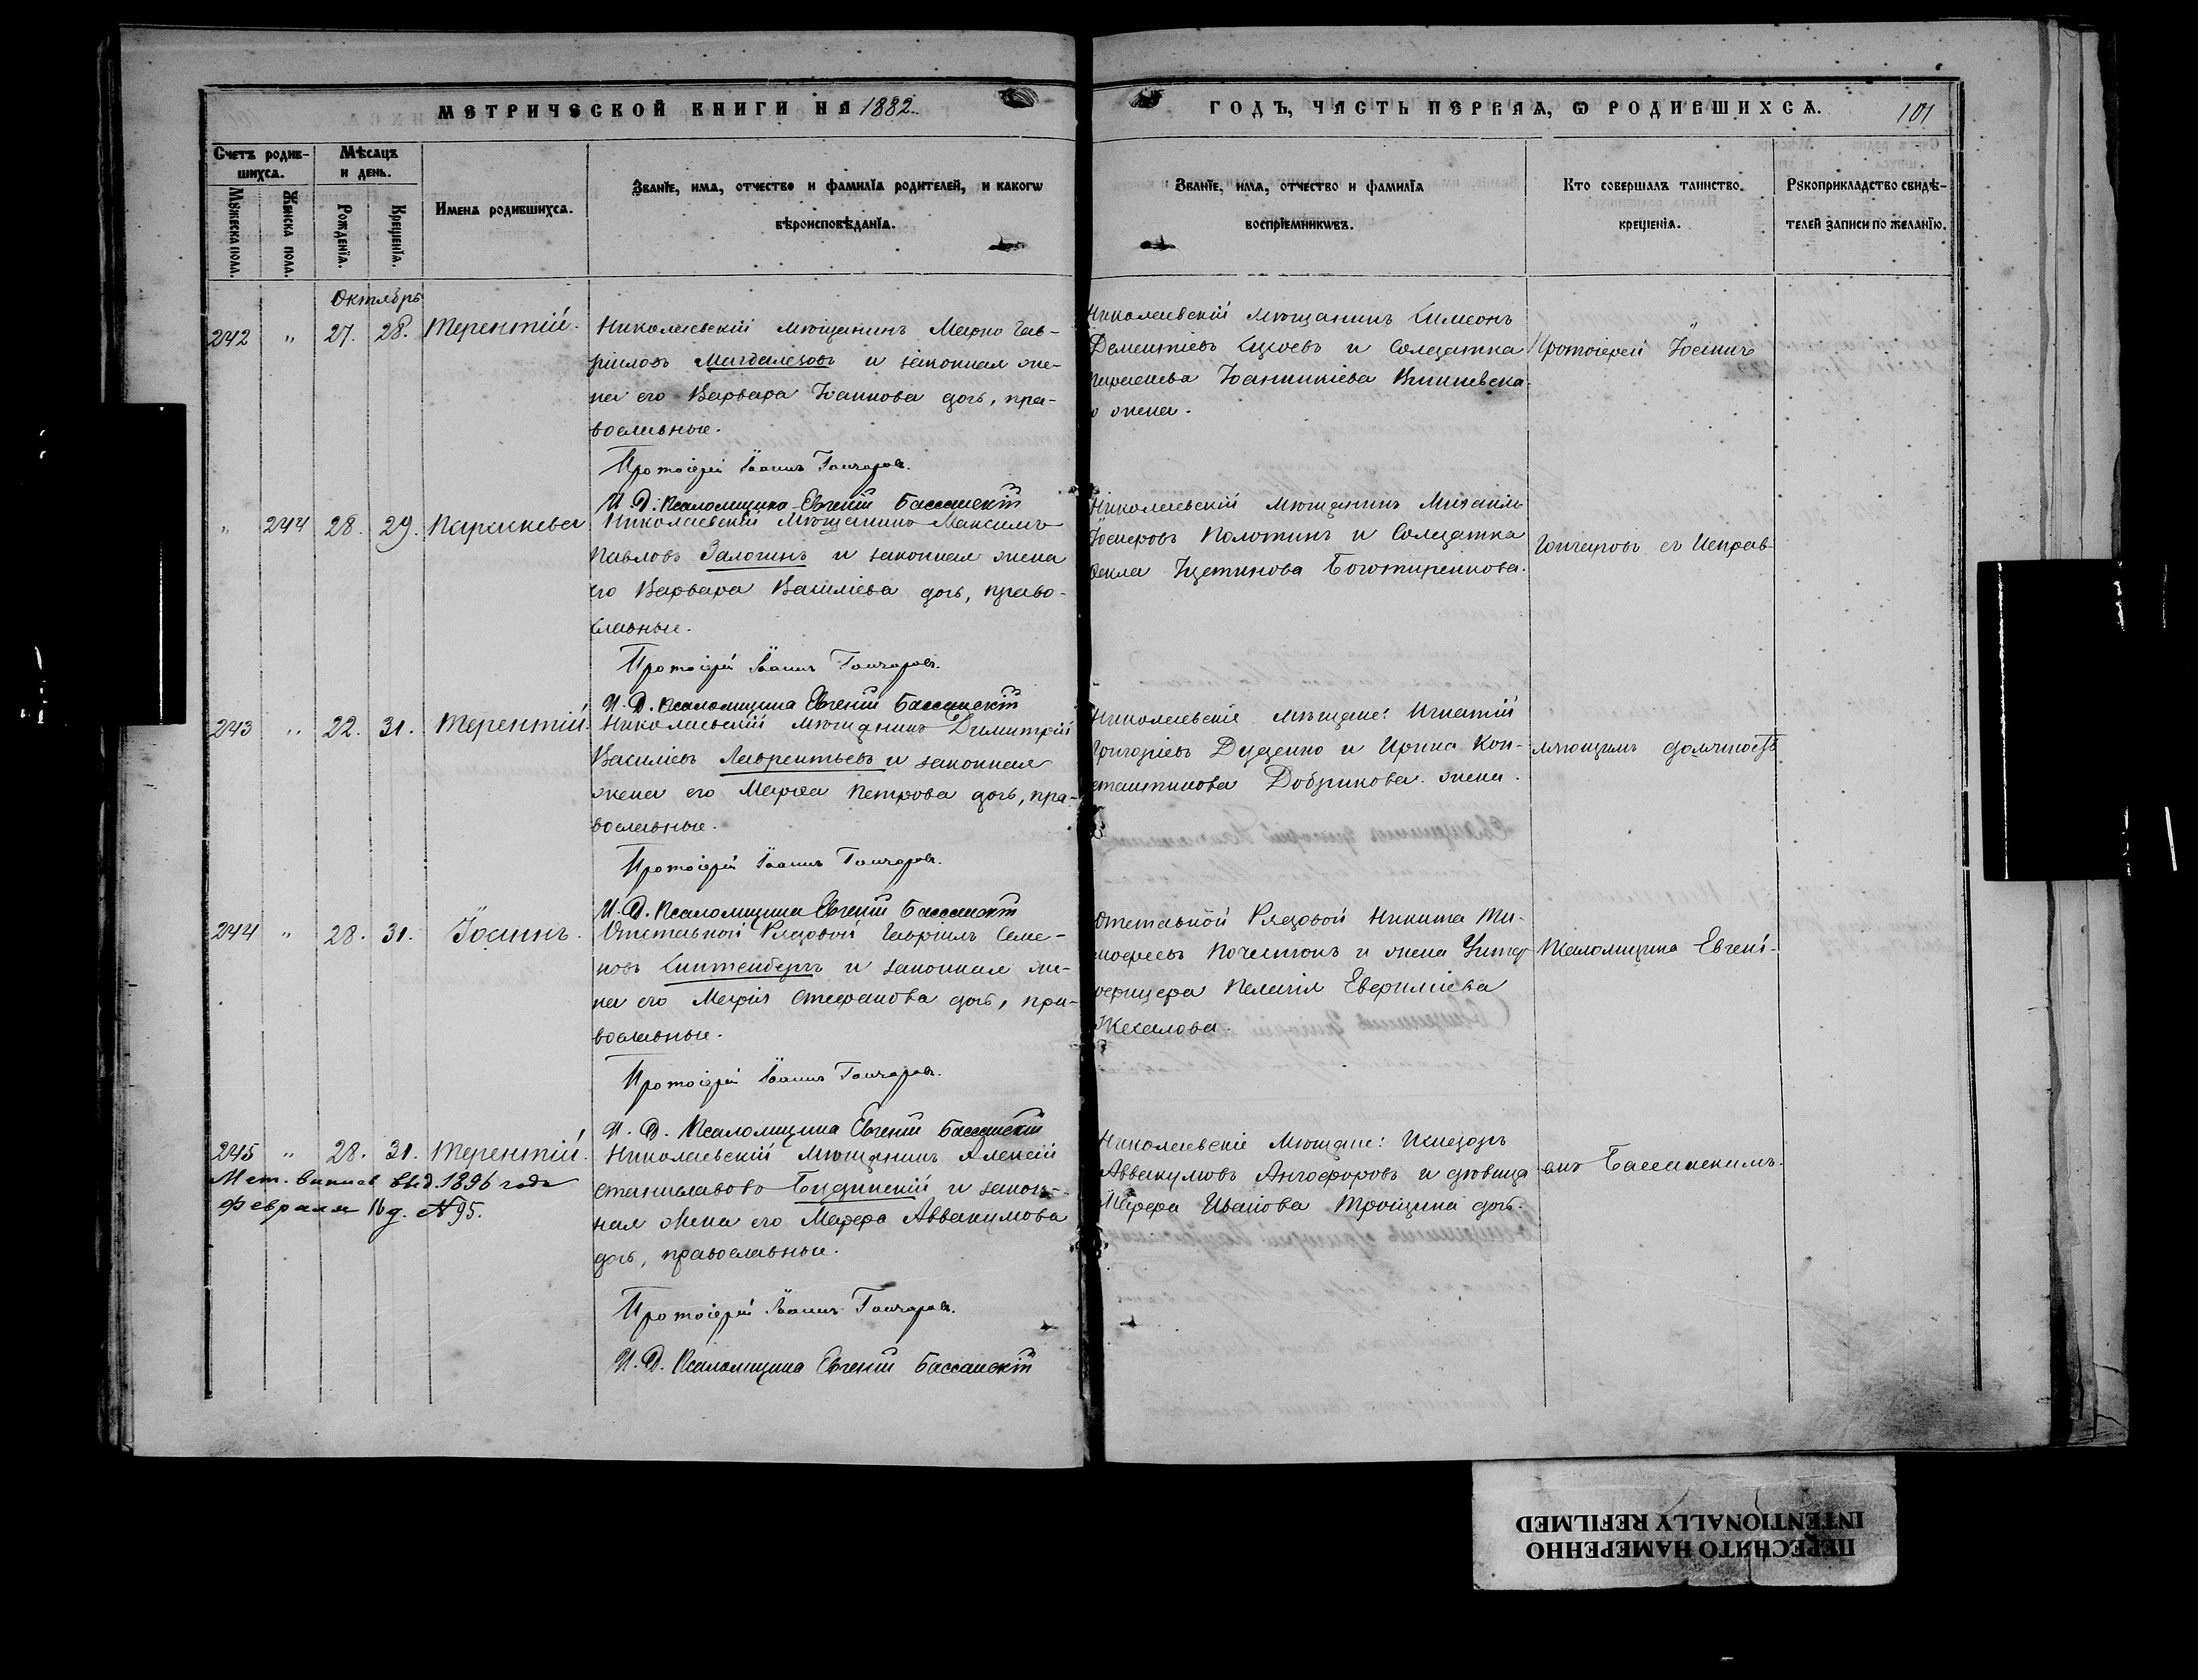 МЕТРИЧЕСКОЙ КНИГИ НА 1882
ГОДЪ, ЧАСТЬ ПЕРВАЯ, Ѿ РОДИВШИХСѦ. 101
Счетъ родив-
шихсѧ.
Мѣсѧцъ
и день.
Мꙋжеска пола.
Женска пола.
Рожденїѧ.
Крещенїѧ.
Имена родившихсѧ.
Званїе, имѧ, отчество и фамилїѧ родителей, и какогѡ
вѣроисповѣданїѧ.
Званїе, имѧ, отчество и фамилїѧ
воспрїемникѡвъ.
Кто совершалъ таинство
крещенїѧ.
Рꙋкоприкладство свидѣ-
телей записи по желанїю.
Октябрь
242 " 27. 28. Терентій.
Николаевскій мѣщанинъ Марко Гав-
ріиловъ и законная же-
на его Варвара Іоаннова дочь, пра-
вославные.
Протоіерей Іоаннъ Гончаровъ.
И. Д. Псаломщика Евгеній Бассанскій
Николаевскій мѣщанинъ Симеонъ
Дементіевъ и Солдатка
Параскева Іоанникіева
жена.
Протоіерей Іоаннъ
" 244 28. 29. Параскева
Николаевскій мѣщанинъ Максимъ
Павловъ Залогинъ и законная жена
его Варвара Василіева дочь, право-
славные.
Протоіерей Іоаннъ Гончаровъ.
И. Д. Псаломщика Евгеній Бассанскій
Николаевскій мѣщанинъ Михаилъ
Полотинъ и Солдатка
Ѳекла
Гончаровъ съ Исправ-
243 " 22. 31. Терентій.
Николаевскій мѣщанинъ Димитрій
Василіевъ Лаврентьевъ и законная
жена его Марѳа Петрова дочь, пра-
вославные.
Протоіерей Іоаннъ Гончаровъ.
И. Д. Псаломщика Евгеній Бассанскій
Николаевскіе мѣщане: Игнатій
Григоріевъ Дуденко и Ирина Кон-
стантинова Добрикова жена.
ляющимъ должность
244 " 28. 31. Іоаннъ.
Отставной Рядовой Гавріилъ Семе-
новъ и законная же-
на его Марія Стефанова дочь, пра-
вославные.
Протоіерей Іоаннъ Гончаровъ.
И. Д. Псаломщика Евгеній Бассанскій
Отставной Рядовой Никита Ти-
моѳеевъ и жена Унтеръ
офицера Пелагія
Псаломщика Евгені-
245 " 28. 31. Терентій.
Мет. выпись выд. 1896 года
Февраля 16 д. № 95.
Николаевскій мѣщанинъ Алексій
Станиславовъ Будинскій и закон-
ная жена его Марѳа Аввакумова
дочь, православные.
Протоіерей Іоаннъ Гончаровъ.
И. Д. Псаломщика Евгеній Бассанскій
Николаевскіе мѣщане:
Аввакумовъ и дѣвица
Марѳа Иванова дочь.
емъ Бассанскимъ.
ПЕРЕСНЯТО НАМЕРЕННО
INTENTIONALLY REFILMED